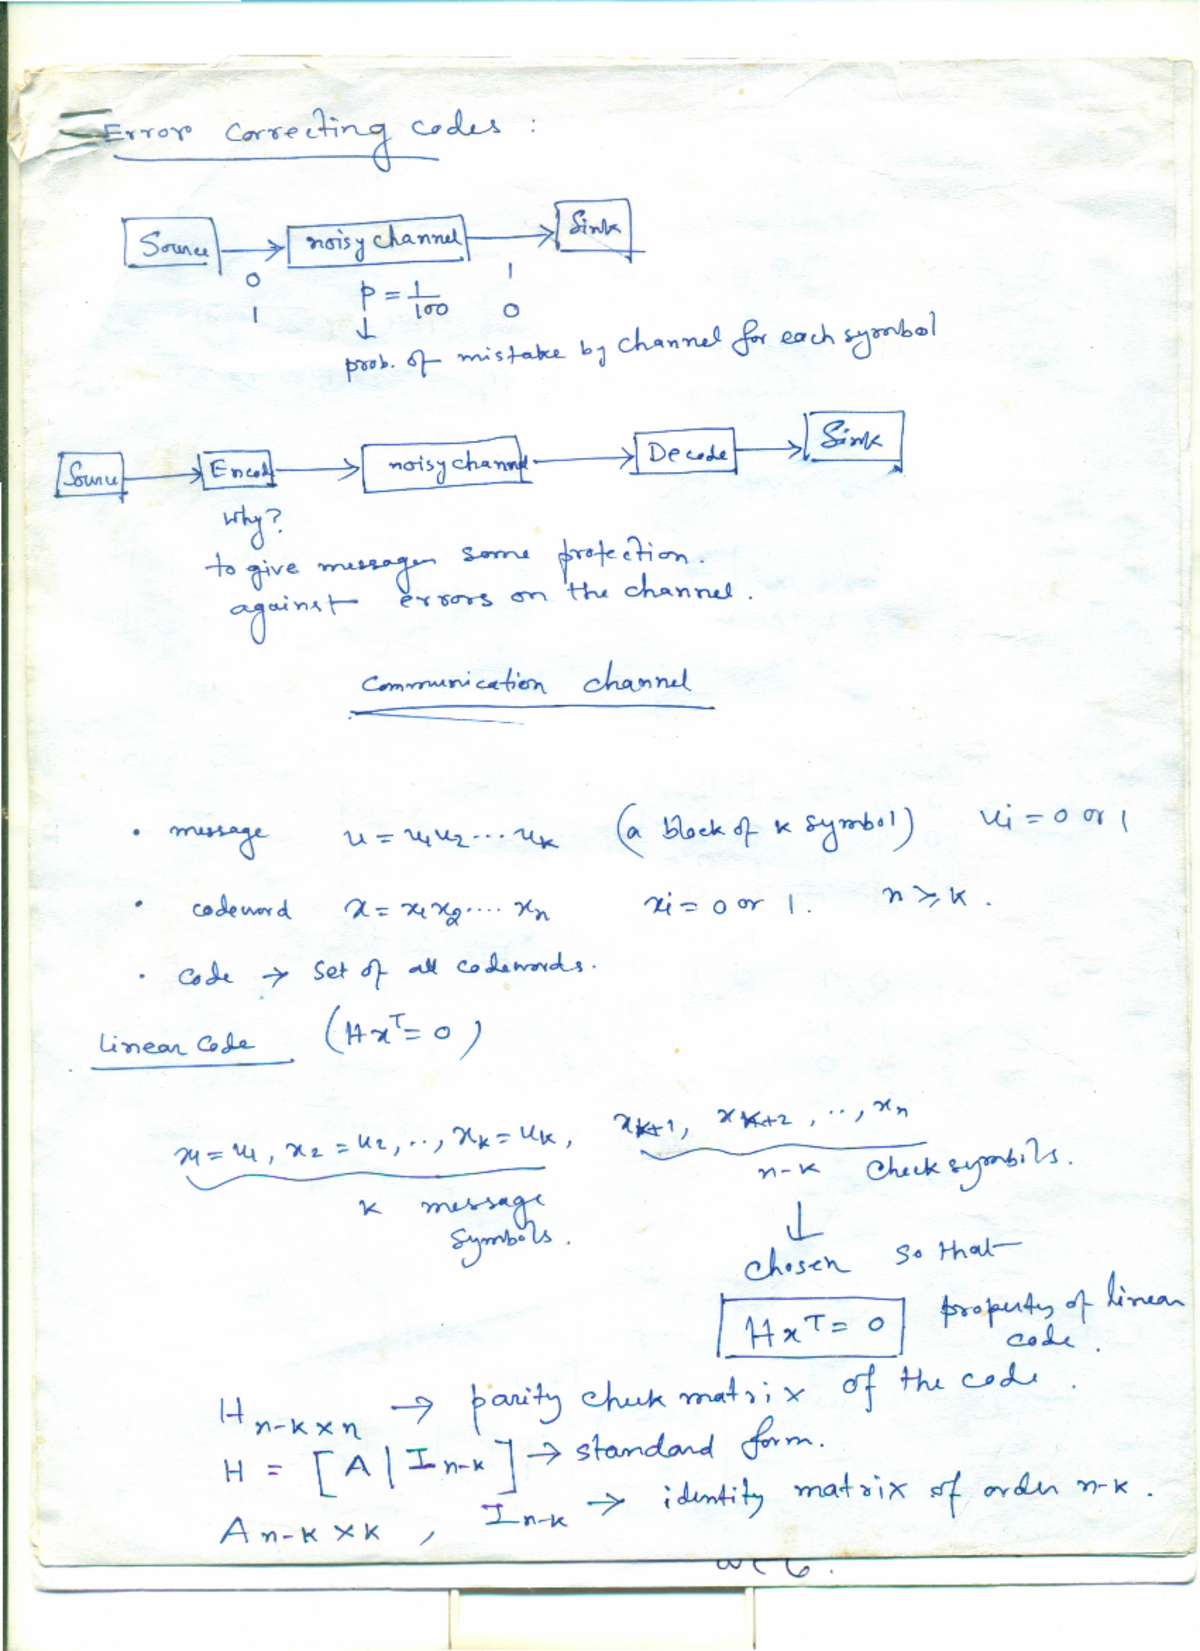 Error Correcting codes :
Source → noisy channel → Sink
0 1
1 0
p = 1/100
↓
prob. of mistake by channel for each symbol
Source → Encode → noisy channel → Decode → Sink
Why?
to give messages some protection.
against errors on the channel.
Communication channel
• message u = u₁u₂...uₖ (a block of k symbol) uᵢ = 0 or 1
• codeword x = x₁x₂....xₙ xᵢ = 0 or 1. n ≥ k.
• Code → Set of all codewords.
Linear Code (Hxᵀ = 0)
x₁ = u₁, x₂ = u₂, .., xₖ = uₖ, xₖ₊₁, xₖ₊₂, .., xₙ
k message symbols. n-k Check symbols.
↓
chosen so that
Hxᵀ = 0 property of linear code.
H n-k×n → parity check matrix of the code.
H = [A | I n-k] → standard form.
A n-k×k , I n-k → identity matrix of order n-k.